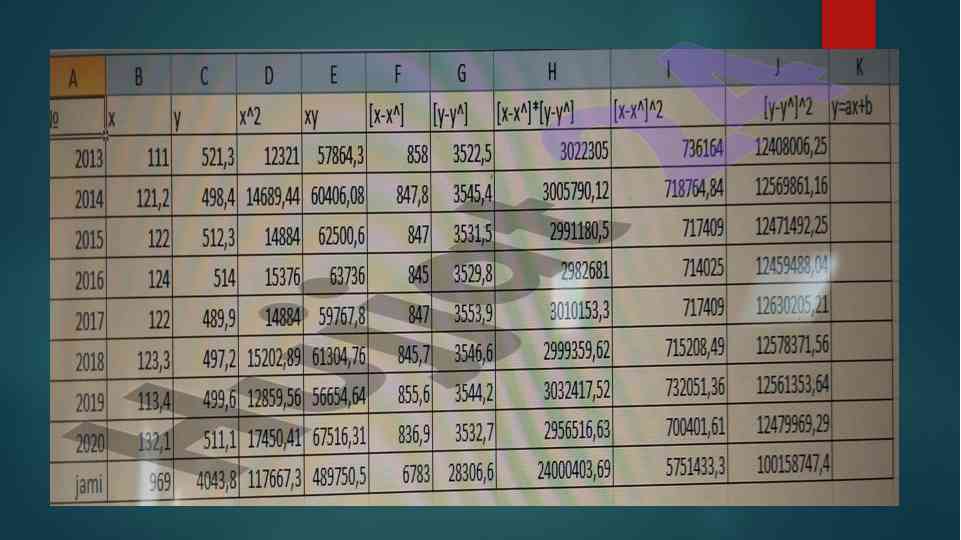 A B C D E F G H I J K
№ x y x^2 xy [x-x^] [y-y^] [x-x^]*[y-y^] [x-x^]^2 [y-y^]^2 y=ax+b
2013 111 521,3 12321 57864,3 858 3522,5 3022305 736164 12408006,25
2014 121,2 498,4 14689,44 60406,08 847,8 3545,4 3005790,12 718764,84 12569861,16
2015 122 512,3 14884 62500,6 847 3531,5 2991180,5 717409 12471492,25
2016 124 514 15376 63736 845 3529,8 2982681 714025 12459488,04
2017 122 489,9 14884 59767,8 847 3553,9 3010153,3 717409 12630205,21
2018 123,3 497,2 15202,89 61304,76 845,7 3546,6 2999359,62 715208,49 12578371,56
2019 113,4 499,6 12859,56 56654,64 855,6 3544,2 3032417,52 732051,36 12561353,64
2020 132,1 511,1 17450,41 67516,31 836,9 3532,7 2956516,63 700401,61 12479969,29
jami 969 4043,8 117667,3 489750,5 6783 28306,6 24000403,69 5751433,3 100158747,4